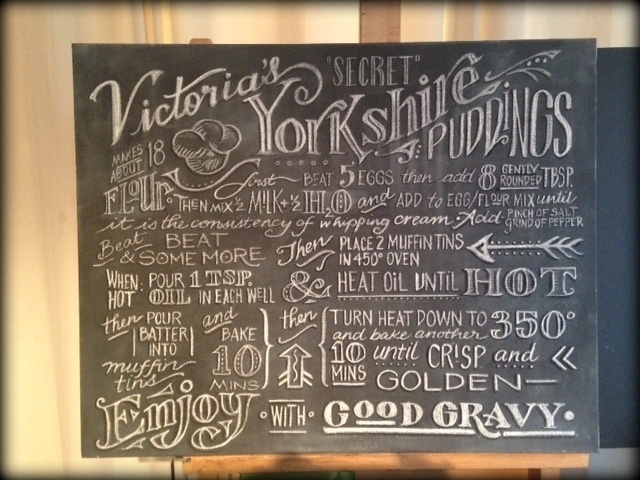 Victoria's "SECRET"
Yorkshire PUDDINGS
MAKES ABOUT 18
first BEAT 5 EGGS then add 8 GENTLY ROUNDED TBSP.
FLOUR. THEN MIX ½ MILK + ½ H2O and ADD TO EGG/FLOUR MIX until
it is the consistency of whipping cream. Add PINCH OF SALT GRIND OF PEPPER
Beat BEAT & SOME MORE Then PLACE 2 MUFFIN TINS IN 450° OVEN
WHEN HOT: POUR 1 TSP. OIL IN EACH WELL & HEAT OIL UNTIL HOT
then POUR BATTER INTO muffin tins and BAKE 10 MINS
then TURN HEAT DOWN TO 350° and bake another 10 MINS until CRISP and GOLDEN—
Enjoy • WITH • GOOD GRAVY •